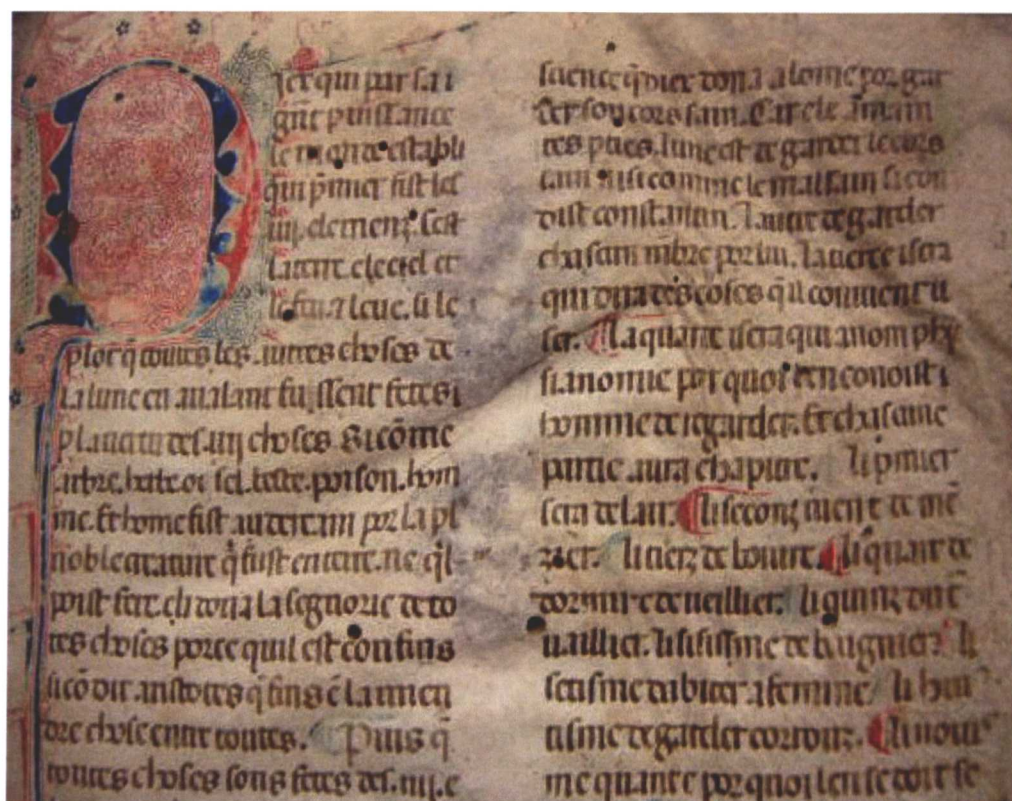 iex qui par sa
gñt puissance
le monde establi
qui p̃mier fist les
.iiij. elemenz. cest
la terre. el ciel et
le feu. ⁊ leue. si le
plot q̃ toutes les autres choses de
la lune en aualant fussent fetes
des .iiij. choses si cõme
arbre. herbe. oisel. beste. poison. hom
me. Et home fist au derrain por la pl
noble creature q̃ fust en terre. ne q̃l
poist fere. eli dona la segnorie de to
tes choses porce quil est
si cõ dit aristotes q̃ fins ẽ la
dre chose entre toutes. Puis q̃
toutes choses sons fetes des .iiij. e
science q̃ diex dona a lome por gar
der son cors sain. Car ele
tes pties. lune est de garder le cors
sain. si comme le si con
dist constantin. Lautre de garder
chascun mẽbre por lui. La tierce isera
qui dira des coses q̃ il conuient u
ser. La quarte isera qui a nom phy
sianomie por quoi len conoist
homme de regarder. Et chascune
partie aura chapitre. li p̃mier
sera de lair. li seconz ment de mẽ
gier. li tierz de boiure. li quart de
dormir e de ueillier. li quinz
uaillier. li sisisme de baignier. li
setisme dabiter a femme. li hui
tisme de garder corrouz. li nouis
me quante por quoi len se doit se